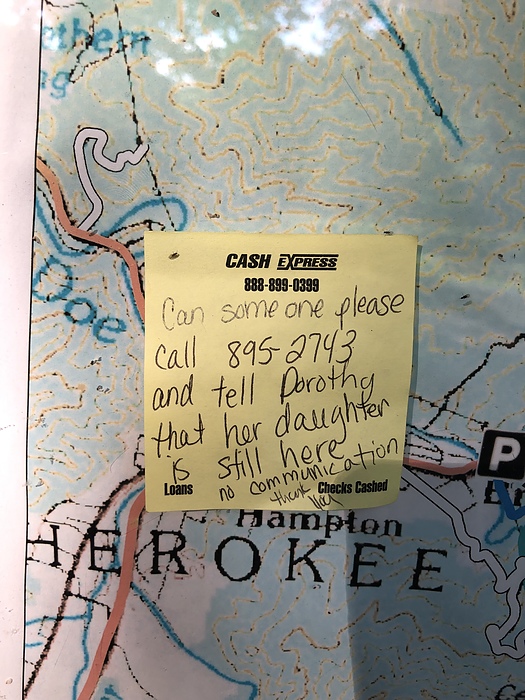 thern
g
Doe
CASH EXPRESS
888-899-0399
Can some one please
call 895-2743
and tell Dorothy
that her daughter
is still here
no communication
thank you
Loans
Checks Cashed
P
Hampton
HEROKEE